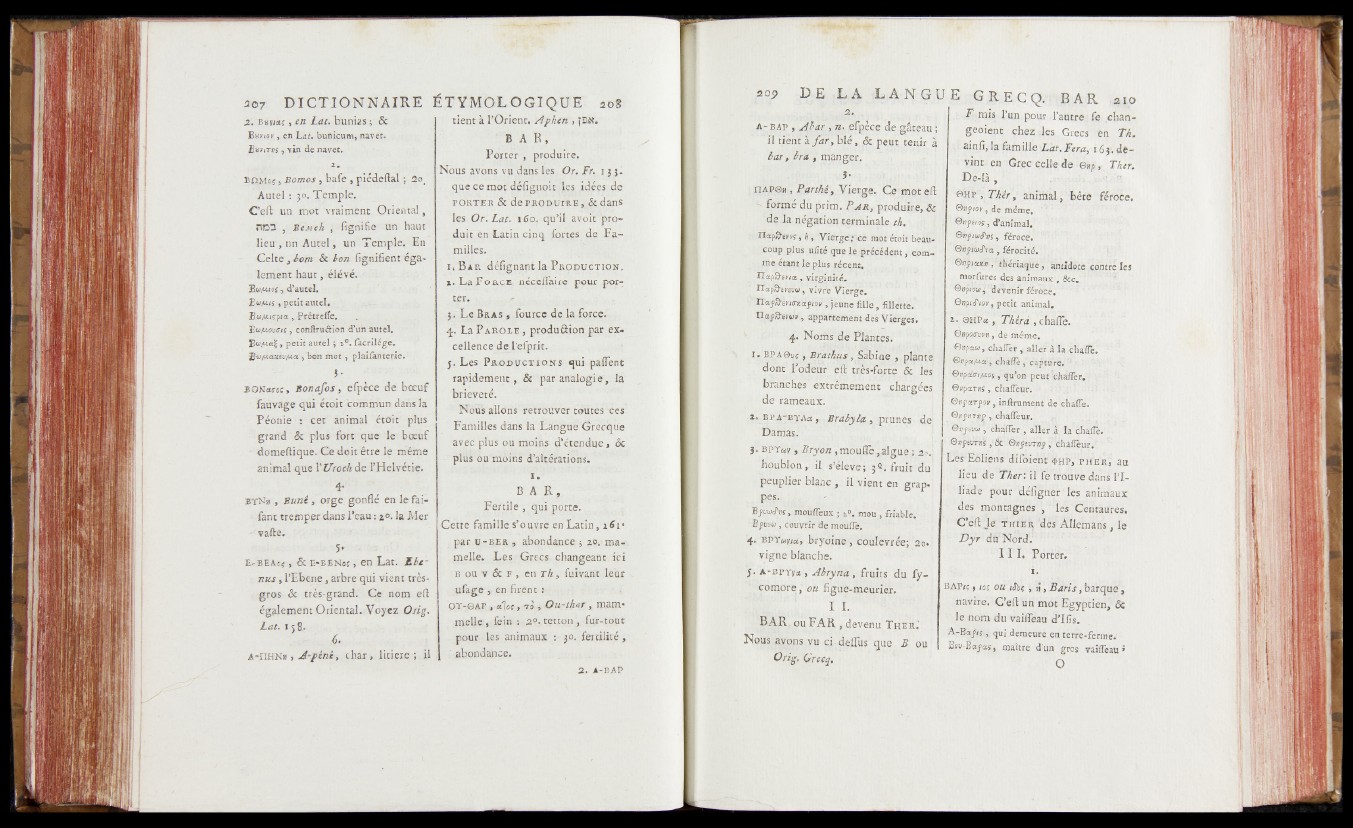 207 DICTIONNAIRE ÉTYMOLOGIQUE 208
2. Βυνιας, en Lat. bunias; &
Βυνιον, en Lat. bunicum, navet.
Βυνιτης, vin de navet.
2.
ΒΩΜος, Bomos, baſe, piédeſtal; 2o.
Autel: 3o. Temple.
C'eſt un mot vraiment Oriental,
במה, Bemeh, ſignifie un haut
lieu, un Autel, un Temple. En
Celte, bom & bon ſignifient éga-
lement haut, élévé.
Βωμιος, d'autel.
Βωμις, petit autel.
Βωμιστρια, Prêtreſſe.
conſtruction d'un autel.
Βωμαξ, petit autel; 2°. ſacrilége.
bon mot, plaiſanterie.
3.
ΒΟΝασος, Bonaſos, eſpèce de bœuf
ſauvage qui étoit commun dans la
Péonie: cet animal étoit plus
grand & plus fort que le bœuf
domeſtique. Ce doit être le même
animal que l'Uroch de l'Helvétie.
4.
ΒΥΝη, Buné, orge gonflé en le fai-
ſant tremper dans l'eau: 2o. la Mer
vaſte.
5.
Ε-ΒΕΛος, & Ε-ΒΕΝος, en Lat. Ebe-
nus, l'Ebene, arbre qui vient très-
gros & très-grand. Ce nom eſt
également Oriental. Voyez Orig.
Lat. 158.
6.
Α-ΠΗΝη, A-péné, char, litiere; il
tient à l'Orient. Aphen, אפן.
BAR,
Porter, produire.
Nous avons vu dans les Or. Fr. 133.
que ce mot déſignoit les idées de
PORTER & de PRODUIRE, & dans
les Or. Lat. 160. qu'il avoit pro-
duit en Latin cinq ſortes de Fa-
milles.
1. BAR déſignant la PRODUCTION.
2. La FORCE néceſſaire pour por-
ter.
3. Le BRAS, ſource de la force.
4. La PAROLE, production par ex-
cellence de l'eſprit.
5. Les PRODUCTIONS qui paſſent
rapidement, & par analogie, la
brieveté.
Nous allons retrouver toutes ces
Familles dans la Langue Grecque
avec plus ou moins d'étendue, &
plus ou moins d'altérations.
I.
BAR,
Fertile, qui porte.
Cette famille s'ouvre en Latin, 161.
par U-BER, abondance; 2o. ma-
melle. Les Grecs changeant ici
B ou V & F, en Th, ſuivant leur
uſage, en firent:
ΟΥ-ΘΑΡ, ατος, τὸ, Ou-thar, mam-
melle, ſein: 2o. tetton, ſur-tout
pour les animaux: 3o. fertilité,
abondance.
2. Α-ΒΑΡ
209 DE LA LANGUE GRECQ. BAR 210
2.
Α-ΒΑΡ, Abar, n. eſpèce de gâteau;
il tient à far, blé, & peut tenir à
bar, bra, manger.
3.
ΠΑΡΘη, Parthé, Vierge. Ce mot eſt
formé du prim. PAR, produire, &
de la négation terminale th.
Παρθενος, ὁ, Vierge; ce mot étoit beau-
coup plus uſité que le précédent, com-
me étant le plus récent.
Παρθενια, virginité.
Παρθενευω, vivre Vierge.
Παρθενισκαριον, jeune fille, fillette.
Παρθενων, appartement des Vierges.
4. Noms de Plantes.
1. ΒΡΑΘυς, Brathus, Sabine, plante
dont l'odeur eſt très-forte & les
branches extrêmement chargées
de rameaux.
2. ΒΡΑ-ΒΥΛα, Brabyla, prunes de
Damas.
3. ΒΡΥον, Bryon, mouſſe, algue; 2o.
houblon, il s'éleve; 3o. fruit du
peuplier blanc, il vient en grap-
pes.
Βρυωδης, mouſſeux; 2°. mou, friable.
Βρυοω, couvrir de mouſſe.
4. ΒΡΥωνια, bryoine, coulevrée; 2o.
vigne blanche.
5. Α-ΒΡΥνα, Abryna, fruits du ſy-
comore, ou figue-meurier.
II.
BAR ou FAR, devenu THER.
Nous avons vu ci-deſſus que B ou
Orig. Grecq.
F mis l'un pour l'autre ſe chan-
geoient chez les Grecs en Th.
ainſi, la famille Lat. Fera, 163. de-
vint en Grec celle de Θηρ, Ther.
De-là,
ΘΗΡ, Thér, animal, bête féroce.
Θηριον, de même.
Θηρειος, d'animal.
Θηριωδης, féroce.
Θηριωδια, férocité.
Θηριακη, thériaque, antidote contre les
morſures des animaux, &c.
Θηριοω, devenir féroce.
Θηριδιον, petit animal.
2. ΘΗΡα, Théra, chaſſe.
Θηροσυνη, de même.
Θηραω, chaſſer, aller à la chaſſe.
Θηραμα, chaſſe, capture.
Θηρασιμος, qu'on peut chaſſer.
Θηρατης, chaſſeur.
Θηρατρον, inſtrument de chaſſe.
Θηρητηρ, chaſſeur.
Θηρευω, chaſſer, aller à la chaſſe.
Θηρευτης, & Θηρευτηρ, chaſſeur.
Les Eoliens diſoient ΦΗΡ, PHER, au
lieu de Ther: il ſe trouve dans l'I-
liade pour déſigner les animaux
des montagnes, les Centaures.
C'eſt le THIER des Allemans, le
Dyr du Nord.
III. Porter.
1.
ΒΑΡις, ιος ou ιδος, ἡ, Baris, barque,
navire. C'eſt un mot Egyptien, &
le nom du vaiſſeau d'Iſis.
Α-Βαρις, qui demeure en terre-ferme.
Βου-Βαρις, maître d'un gros vaiſſeau;
O